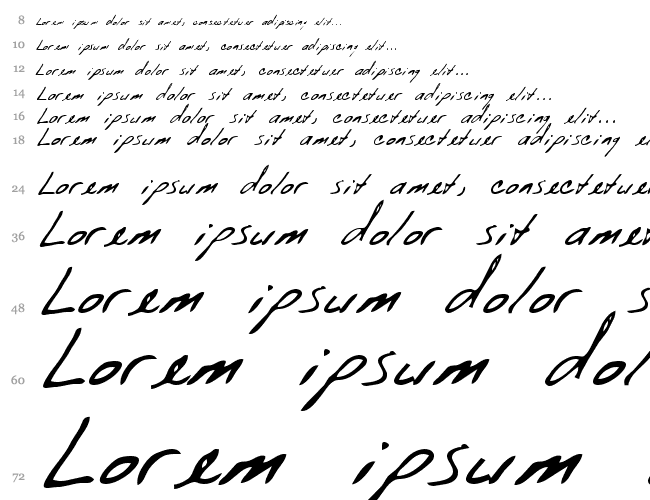 8 Lorem ipsum dolor sit amet, consectetuer adipiscing elit...
10 Lorem ipsum dolor sit amet, consectetuer adipiscing elit...
12 Lorem ipsum dolor sit amet, consectetuer adipiscing elit...
14 Lorem ipsum dolor sit amet, consectetuer adipiscing elit...
16 Lorem ipsum dolor sit amet, consectetuer adipiscing elit...
18 Lorem ipsum dolor sit amet, consectetuer adipiscing e
24 Lorem ipsum dolor sit amet, consectetue
36 Lorem ipsum dolor sit ame
48 Lorem ipsum dolor s
60 Lorem ipsum dol
72 Lorem ipsum